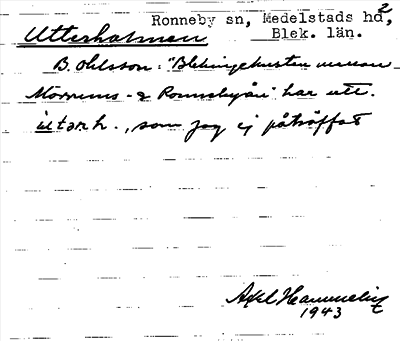 Ronneby sn, Medelstads hd, 2
Blek. län.
Utterholmen
B. Ohlsson: "Blekingekusten mellan
Mörrums- & Ronnebyån" har utt.
som jag ej påträffat
Axel Hammelin
1943